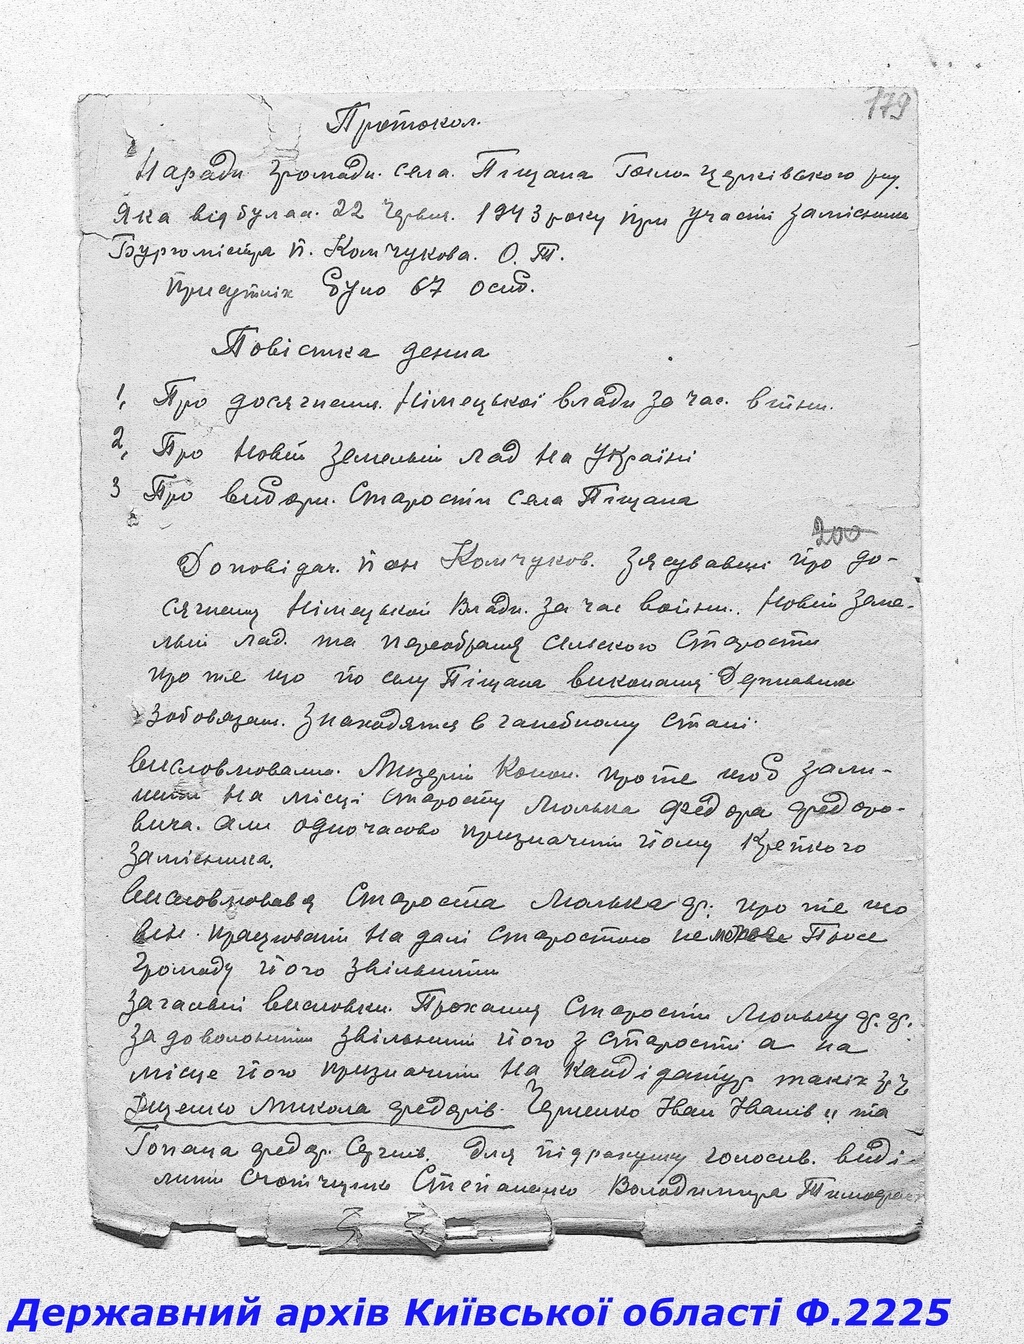 179
Протокол.
Наради громади. села. Піщана Біло-Церківського р-ну.
Яка відбулас. 22 Червня. 1943 року при участі Замісника
Бургомістра п. Комчукова. О. Т.
Присутніх було 67 осіб.
Повістка денна
1, Про досягнення. Німецької влади за час. війни.
2, Про Новий Земельний Лад На Україні
3 Про вибори. Старости села Піщана
200
Доповідач. Пан Комчуков. Зясувавши про до-
сягнення Німецької Влади. за час войни. Новий Земе-
льний лад. та переобрання сельского Старости
про те що по селу Піщана виконання Державних
Зобовязан. Знаходятся в ганебному стані.
Висловлювались. Мизерний Конон. про те щоб зали-
шити на місці старосту Люлька Федора Федоро-
вича. али одночасово призначити йому Крепкого
Замісника.
Висловлювався Староста Люлька Ф. про те що
він працювати На далі старостою не може Просе
громаду його звільнити
Загальні висловки. Прохання Старости Люльку Ф. Ф.
задоволнити звільнити його з старости а на
місце його призначити На Кандідатур таких гр. гр.
Іщенко Микола Федорів. Черненко Іван Іванів. та
Гопача Федор. Сергіїв. Для підрахунку голосів. виді-
лити счотчика Степаненко Володимира Тимофієв
Державний архів Київської області Ф.2225